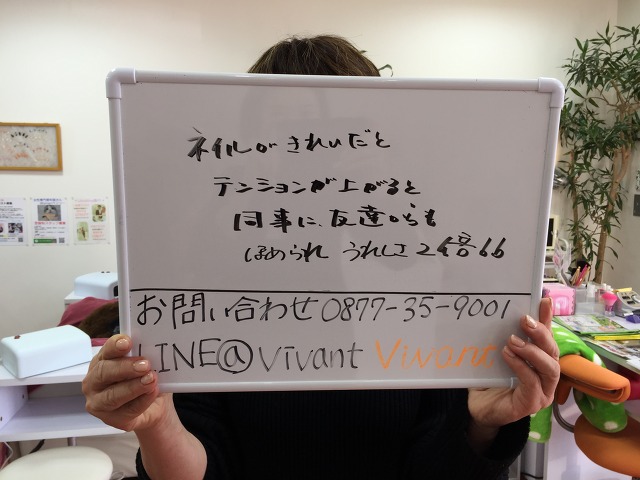 ネイルがきれいだと
テンションが上がると
同事に、友達からも
ほめられ うれしさ2倍
お問い合わせ 0877-35-9001
LINE@vivant Vivant